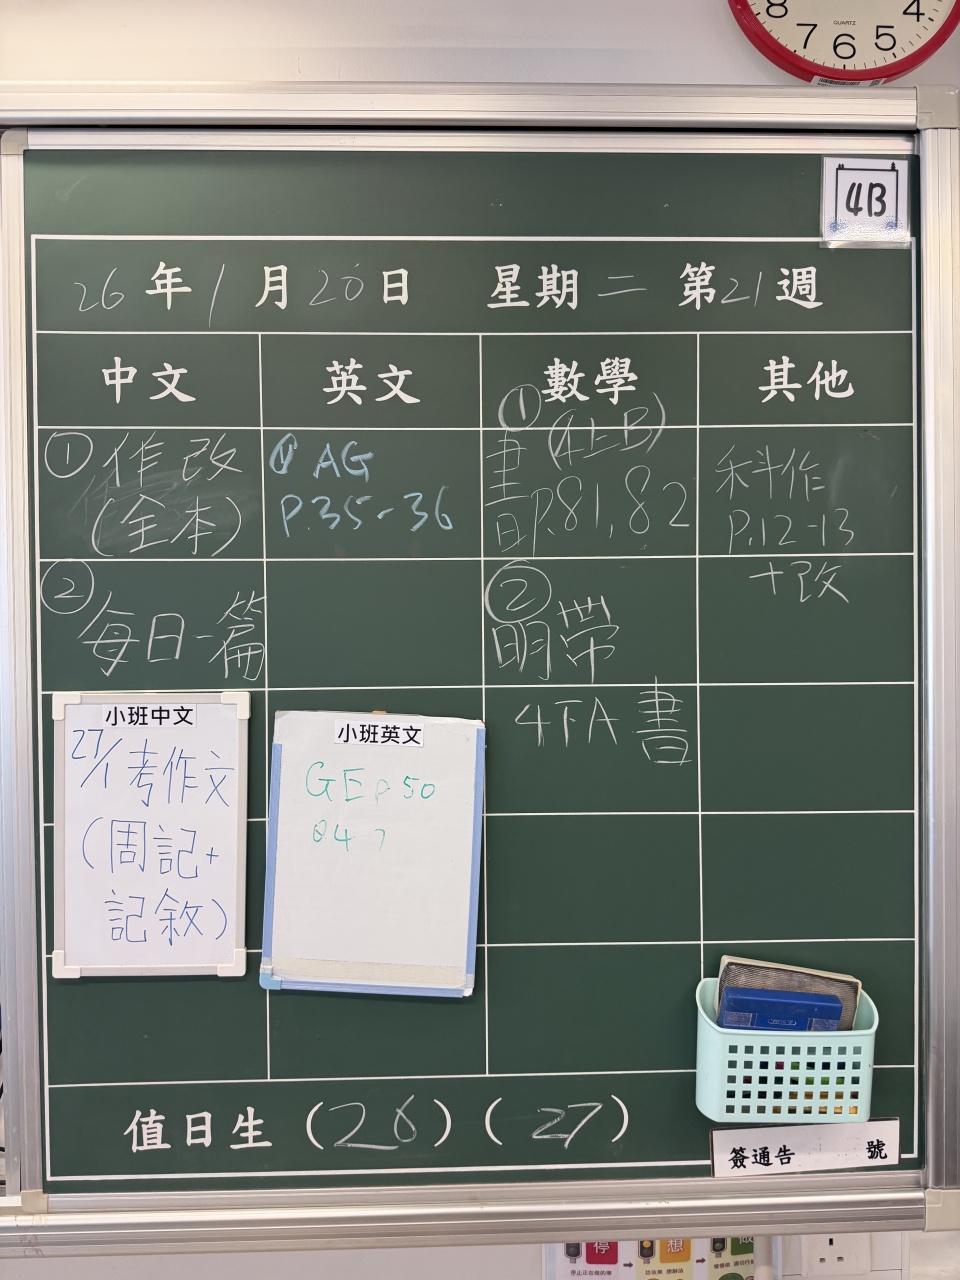 8 7 6 5 4
QUARTZ
4B
26年1月20日 星期二 第21週
中文 英文 數學 其他
①作改
(全本)
②每日一篇
① AG
P.35-36
①(4上B)
書P.81,82
②
明帶
4下A 書
科作
P.12-13
+改
小班中文
27/1考作文
(周記+
記敘)
小班英文
GE p 50
值日生(26)(27)
簽通告 號
停 想
停止正在做的事